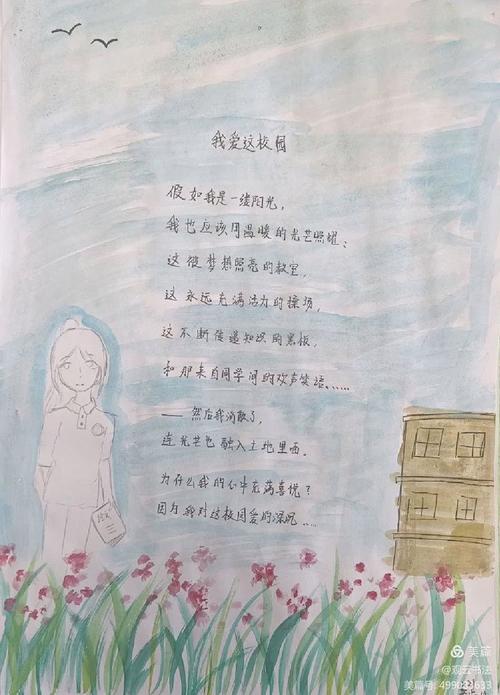 我爱这校园
假如我是一缕阳光，
我也应该用温暖的光芒照耀：
这被梦想照亮的教室，
这永远充满活力的操场，
这不断传递知识的黑板，
和那来自同学间的欢声笑语……
——然后我消散了，
连光芒也融入土地里面。
为什么我的心中充满喜悦？
因为我对这校园爱的深沉……
美篇
@观云书法
美篇号:499033633